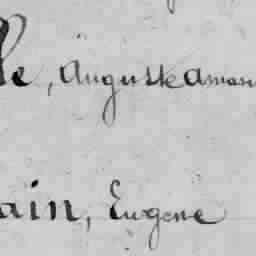 le, Auguste Aman
ain, Eugene